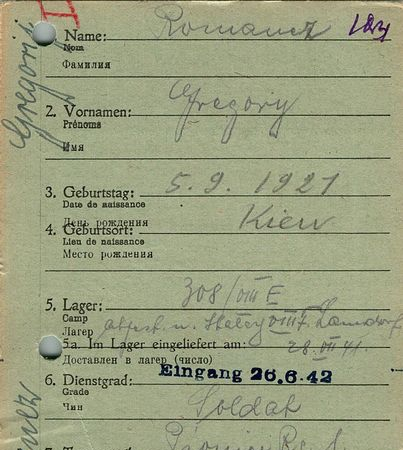 1. Name: Romanez
Nom
Фамилия
Gregorij
2. Vornamen: Gregory
Prénoms
Имя
3. Geburtstag: 5.9.1921
Date de naissance
День рождения
4. Geburtsort: Kiew
Lieu de naissance
Место рождения
5. Lager: 308/VIII E
Camp
Лагер n. Stalag VIII F. Lamsdorf
5a. Im Lager eingeliefert am: 28.VII 41.
Доставлен в лагер (число)
Eingang 26.6.42
6. Dienstgrad: Soldat
Grade
Чин